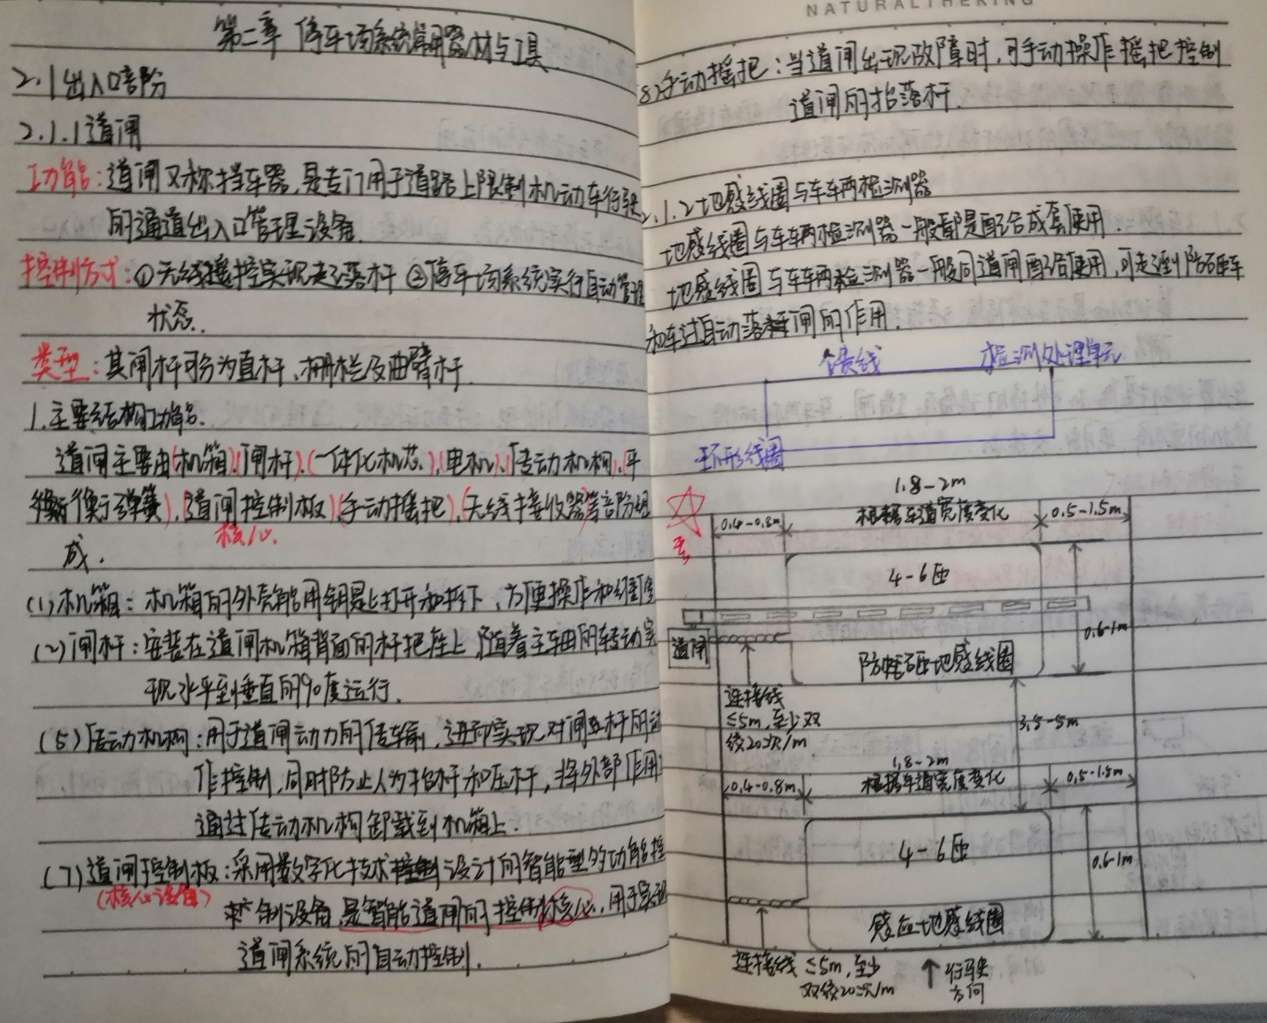 第二章 停车场系统常用器材与工具
2.1 出入口部份
2.1.1 道闸
功能：道闸又称挡车器，是专门用于道路上限制机动车行驶
的通道出入口管理设备.
控制方式：①无线遥控实现起落杆 ②停车场系统实行自动管理
状态.
类型：其闸杆可分为直杆、栅栏及曲臂杆.
1.主要结构功能.
道闸主要由(机箱)、(闸杆)、(一体化机芯)、(电机)、(传动机构)、平
衡(衡)弹簧)、(道闸控制板)、(手动摇把)、(无线接收器)等部份组
核心.
成.
(1)机箱：机箱的外壳能用钥匙打开和拆下，方便操作和
(2)闸杆：安装在道闸机箱背面的杆把座上，随着主轴的转动实
现水平到垂直的90度运行.
(5)传动机构：用于道闸动力的传输，进而实现对闸杆的动
作控制，同时防止人为抬杆和压杆，将外部作用
通过传动机构卸载到机箱上.
(7)道闸控制板：采用数字化技术设计的智能型多功能控
(核心设备)
制设备，是智能道闸的控制核心，用于实现
道闸系统的自动控制.
NATURALTHEKING
8)手动摇把：当道闸出现故障时，可手动操作摇把控制
道闸的抬落杆.
2.1.2 地感线圈与车车两检测器
地感线圈与车车两检测器一般都是配合成套使用.
地感线圈与车车两检测器一般同道闸配合使用，可起到防砸车
和车过自动落闸的作用.
馈线 检测处理单元
环形线圈
1.8-2m
0.4-0.8m 根据车道宽度变化 0.5-1.5m
4-6匝
0.6-1m
道闸 防砸地感线圈
连接线
≤5m，至少双
绞20次/m
3.5-5m
1.8-2m
0.4-0.8m 根据车道宽度变化 0.5-1.5m
4-6匝
0.6-1m
感应地感线圈
连接线 ≤5m，至少
双绞20次/m
行驶
方向